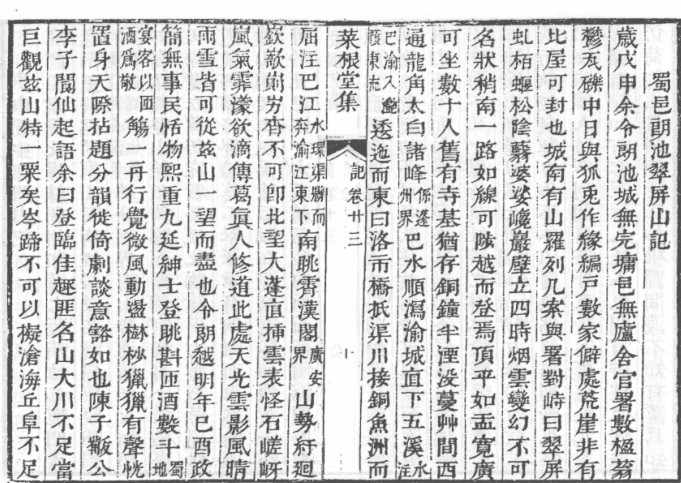 蜀邑朗池翠屏山記
歲戊申余令朗池城無完墉邑無廬舍官署數楹蓊
鬱瓦礫中日與狐兎作緣編戸數家僻處荒崖非有
比屋可封也城南有山羅列几案與署對峙曰翠屏
虬栢蝘松陰翳婆娑巉巖壁立四時烟雲變幻不可
名狀稍南一路如線可陟越而登焉頂平如盂寛廣
可坐數十人舊有寺基猶存銅鐘半湮没蔓艸間西
通龍角太白諸峰係蓬州界巴水順瀉渝城直下五溪水注
巴渝入夔發東流逶迤而東曰洛市橋抵渠川接銅魚洲而
菜根堂集 記 卷廿三 十
屈注巴江水環渠縣而奔渝江東下南眺霄漢閣廣安界山勢紆迴
嶔崱屴杳不可卽北望大蓬直揷雲表怪石嵯岈
嵐氣霏濛欲滴傳葛眞人修道此處天光雲影風晴
雨雪皆可從茲山一望而盡也令朗越明年巳酉政
簡無事民恬物熙重九延紳士登眺斟匝酒數斗蜀地
宴客以面酒爲敬觴一再行覺微風動盪樹杪獵獵有聲恍
置身天際拈題分韻徙倚劇談意豁如也陳子公
李子閬仙起語余曰登臨佳趣匪名山大川不足當
巨觀茲山特一粟矣岑蹄不可以擬滄海丘阜不足